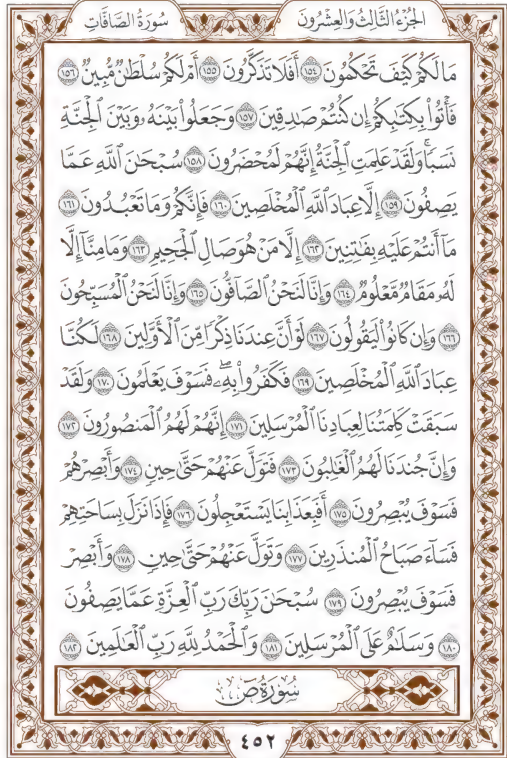 الجزء الثالث والعشرون سورة الصافات
مَا لَكُمْ كَيْفَ تَحْكُمُونَ ١٥٤ أَفَلَا تَذَكَّرُونَ ١٥٥ أَمْ لَكُمْ سُلْطَٰنٌ مُّبِينٌ ١٥٦
فَأْتُوا۟ بِكِتَٰبِكُمْ إِن كُنتُمْ صَٰدِقِينَ ١٥٧ وَجَعَلُوا۟ بَيْنَهُۥ وَبَيْنَ ٱلْجِنَّةِ
نَسَبًا ۚ وَلَقَدْ عَلِمَتِ ٱلْجِنَّةُ إِنَّهُمْ لَمُحْضَرُونَ ١٥٨ سُبْحَٰنَ ٱللَّهِ عَمَّا
يَصِفُونَ ١٥٩ إِلَّا عِبَادَ ٱللَّهِ ٱلْمُخْلَصِينَ ١٦٠ فَإِنَّكُمْ وَمَا تَعْبُدُونَ ١٦١
مَآ أَنتُمْ عَلَيْهِ بِفَٰتِنِينَ ١٦٢ إِلَّا مَنْ هُوَ صَالِ ٱلْجَحِيمِ ١٦٣ وَمَا مِنَّآ إِلَّا
لَهُۥ مَقَامٌ مَّعْلُومٌ ١٦٤ وَإِنَّا لَنَحْنُ ٱلصَّآفُّونَ ١٦٥ وَإِنَّا لَنَحْنُ ٱلْمُسَبِّحُونَ
١٦٦ وَإِن كَانُوا۟ لَيَقُولُونَ ١٦٧ لَوْ أَنَّ عِندَنَا ذِكْرًا مِّنَ ٱلْأَوَّلِينَ ١٦٨ لَكُنَّا
عِبَادَ ٱللَّهِ ٱلْمُخْلَصِينَ ١٦٩ فَكَفَرُوا۟ بِهِۦ ۖ فَسَوْفَ يَعْلَمُونَ ١٧٠ وَلَقَدْ
سَبَقَتْ كَلِمَتُنَا لِعِبَادِنَا ٱلْمُرْسَلِينَ ١٧١ إِنَّهُمْ لَهُمُ ٱلْمَنصُورُونَ ١٧٢
وَإِنَّ جُندَنَا لَهُمُ ٱلْغَٰلِبُونَ ١٧٣ فَتَوَلَّ عَنْهُمْ حَتَّىٰ حِينٍ ١٧٤ وَأَبْصِرْهُمْ
فَسَوْفَ يُبْصِرُونَ ١٧٥ أَفَبِعَذَابِنَا يَسْتَعْجِلُونَ ١٧٦ فَإِذَا نَزَلَ بِسَاحَتِهِمْ
فَسَآءَ صَبَاحُ ٱلْمُنذَرِينَ ١٧٧ وَتَوَلَّ عَنْهُمْ حَتَّىٰ حِينٍ ١٧٨ وَأَبْصِرْ
فَسَوْفَ يُبْصِرُونَ ١٧٩ سُبْحَٰنَ رَبِّكَ رَبِّ ٱلْعِزَّةِ عَمَّا يَصِفُونَ
١٨٠ وَسَلَٰمٌ عَلَى ٱلْمُرْسَلِينَ ١٨١ وَٱلْحَمْدُ لِلَّهِ رَبِّ ٱلْعَٰلَمِينَ ١٨٢
سُورَةُ ص
٤٥٢